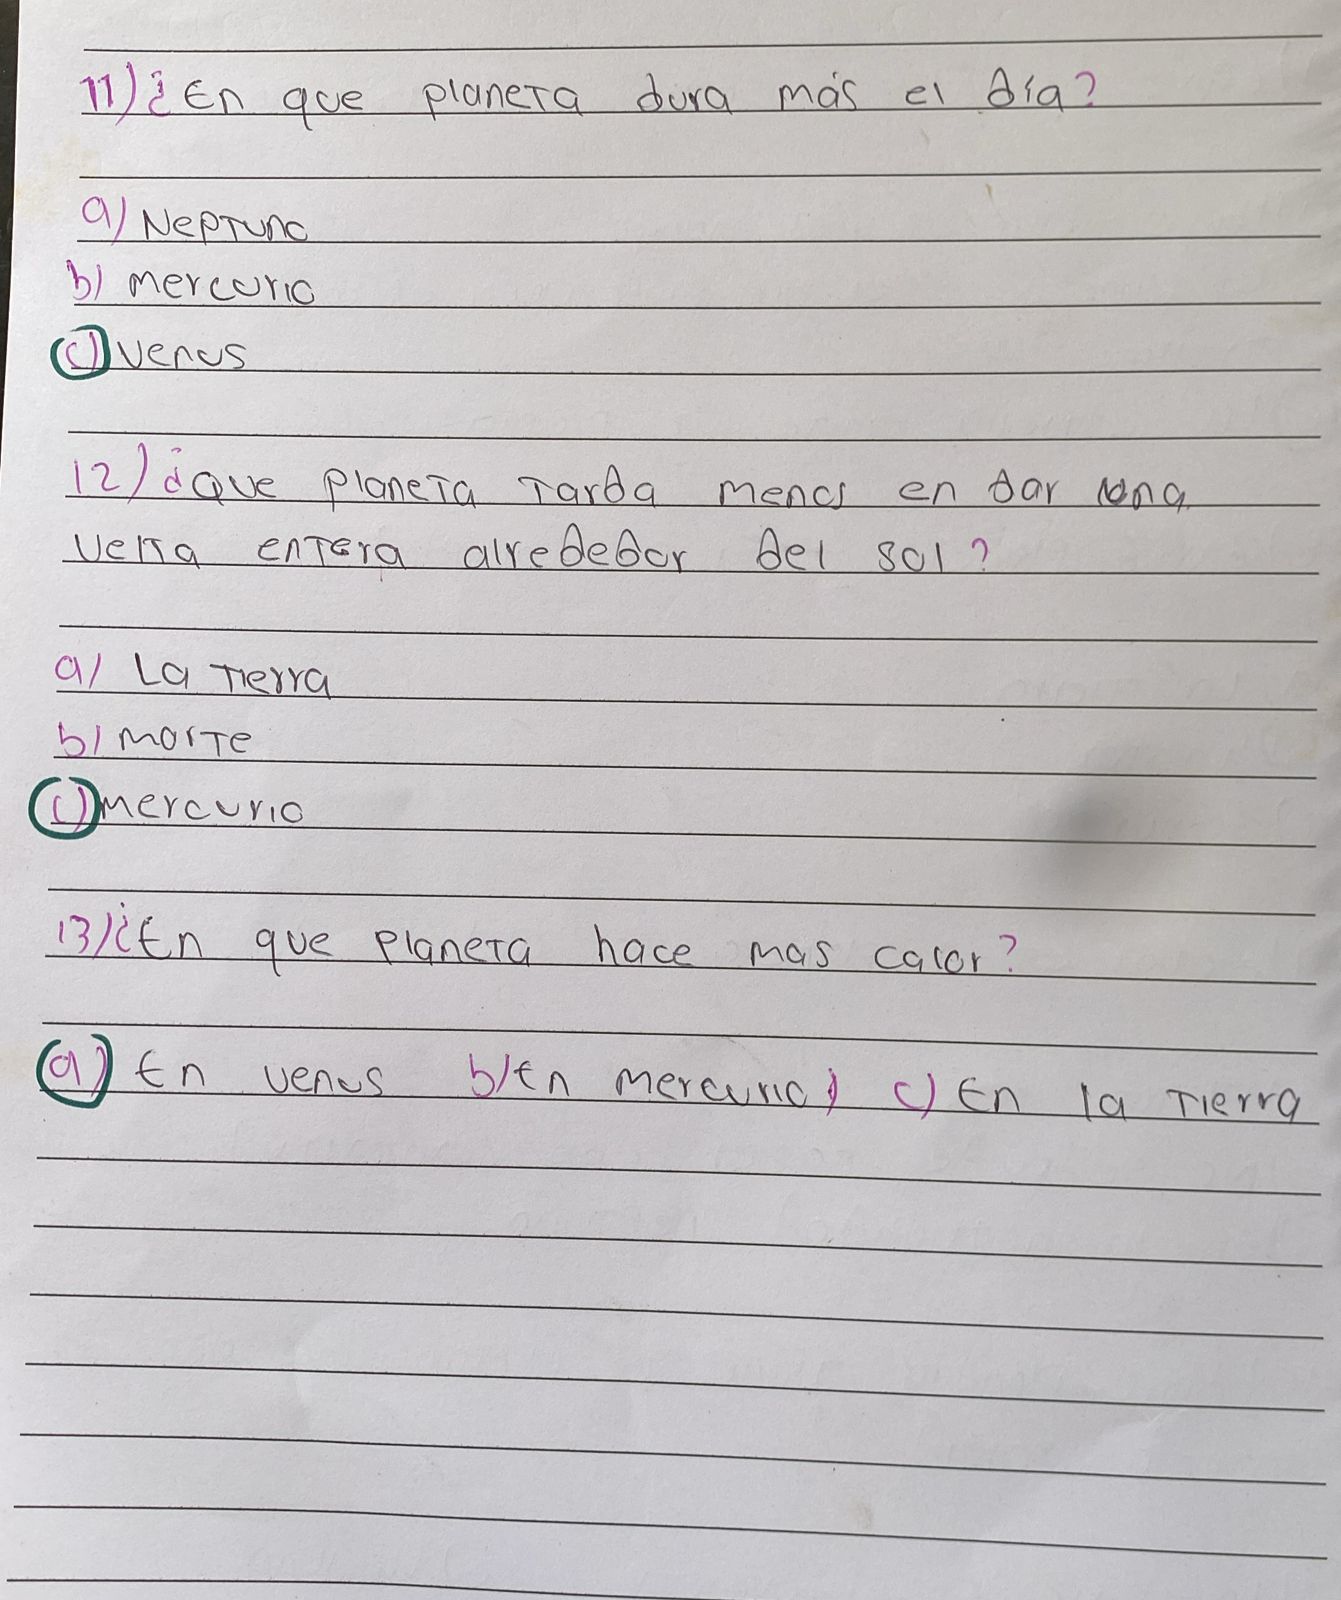 11) ¿En que planeta dura más el día?
a) Neptuno
b) mercurio
c) venus
12) ¿que planeta tarda menos en dar una
vuelta entera alrededor del sol?
a) La Tierra
b) marte
c) mercurio
13) ¿En que planeta hace mas calor?
a) En venus b) En mercurio) c) En la Tierra